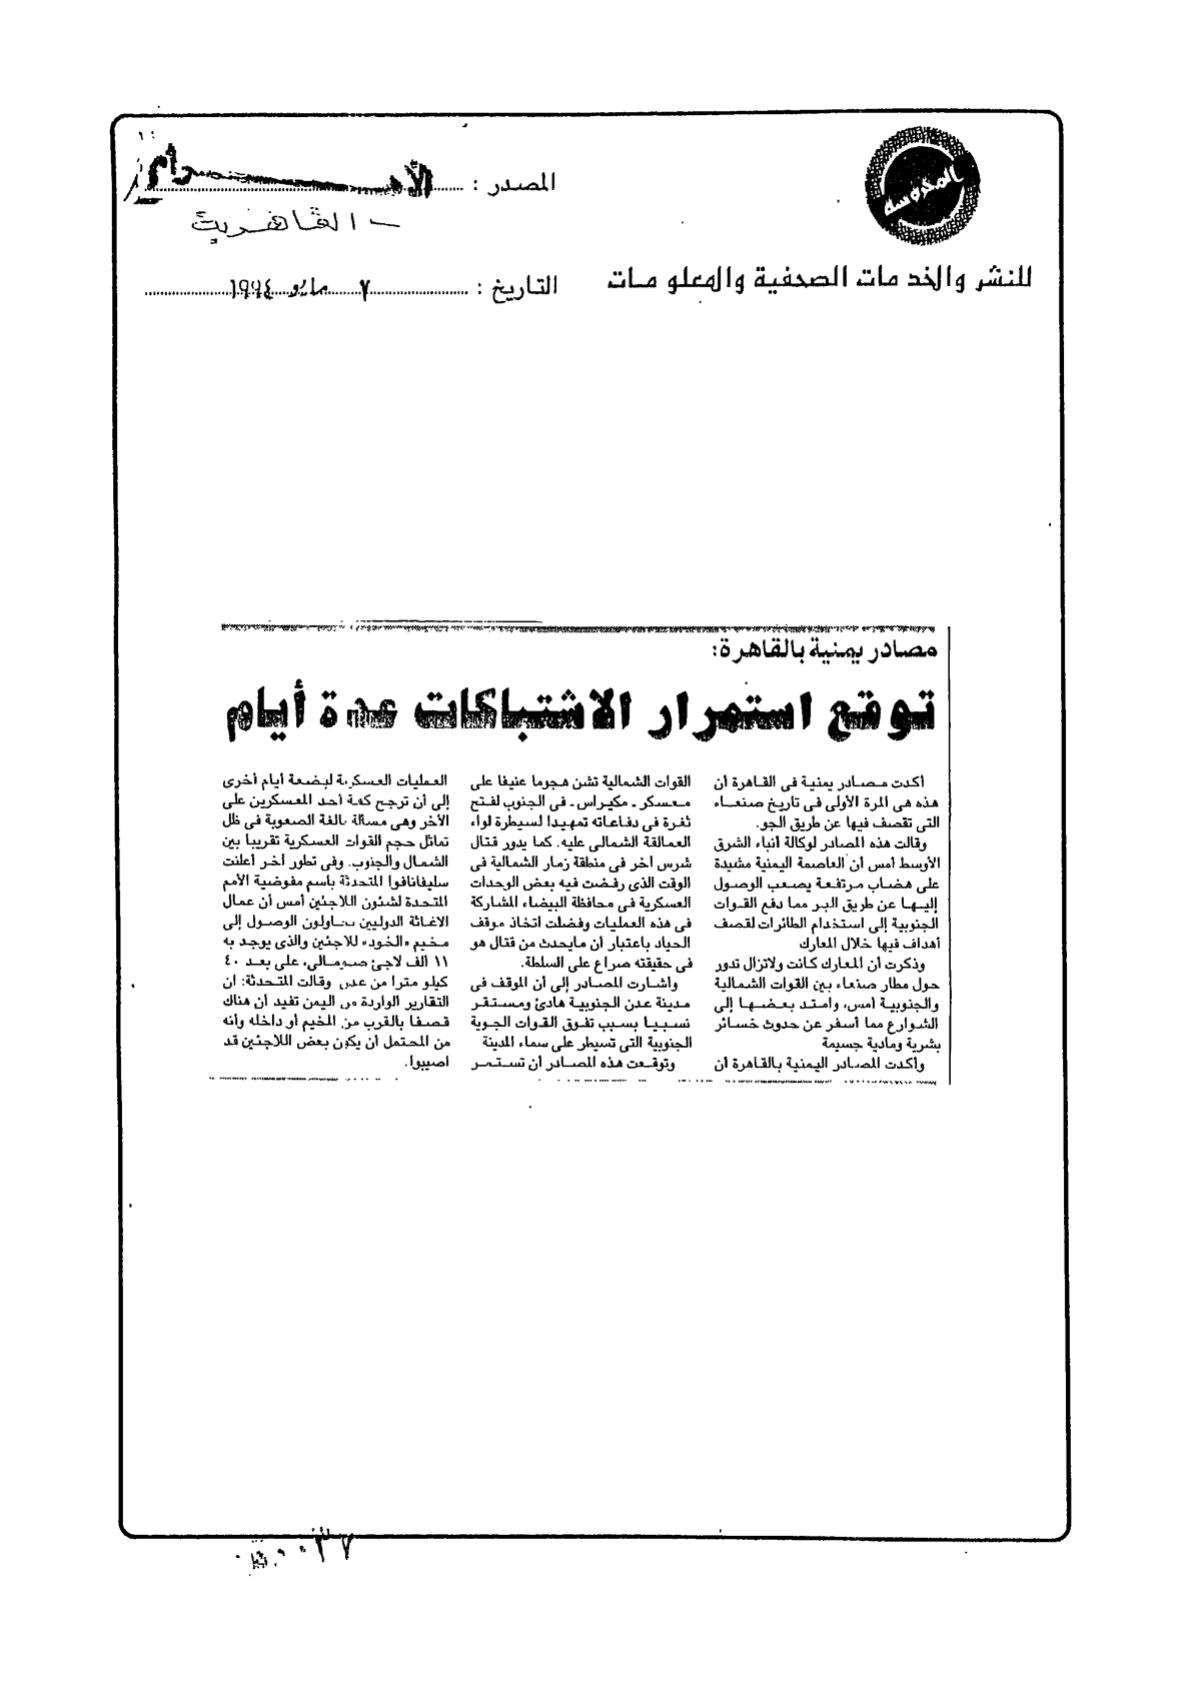 المحروسة
للنشر والخدمات الصحفية والمعلومات
المصدر : الأهـرام
- القاهرية
التاريخ : ٧ مايو ١٩٩٤
مصادر يمنية بالقاهرة:
توقع استمرار الاشتباكات عدة أيام
أكدت مصادر يمنية فى القاهرة أن
هذه هى المرة الأولى فى تاريخ صنعاء
التى تقصف فيها عن طريق الجو.
وقالت هذه المصادر لوكالة أنباء الشرق
الأوسط أمس أن العاصمة اليمنية مشيدة
على هضاب مرتفعة يصعب الوصول
إليها عن طريق البر مما دفع القوات
الجنوبية إلى استخدام الطائرات لقصف
أهداف فيها خلال المعارك
وذكرت أن المعارك كانت ولاتزال تدور
حول مطار صنعاء بين القوات الشمالية
والجنوبية أمس، وامتد بعضها إلى
الشوارع مما أسفر عن حدوث خسائر
بشرية ومادية جسيمة
وأكدت المصادر اليمنية بالقاهرة أن
القوات الشمالية تشن هجوما عنيفا على
معسكر - مكيراس - فى الجنوب لفتح
ثغرة فى دفاعاته تمهيدا لسيطرة لواء
العمالقة الشمالى عليه. كما يدور قتال
شرس آخر فى منطقة زمار الشمالية فى
الوقت الذى رفضت فيه بعض الوحدات
العسكرية فى محافظة البيضاء المشاركة
فى هذه العمليات وفضلت اتخاذ موقف
الحياد باعتبار أن مايحدث من قتال هو
فى حقيقته صراع على السلطة.
وأشارت المصادر إلى أن الموقف فى
مدينة عدن الجنوبية هادئ ومستقر
نسبيا بسبب تفوق القوات الجوية
الجنوبية التى تسيطر على سماء المدينة
وتوقعت هذه المصادر أن تستمر
العمليات العسكرية لبضعة أيام أخرى
إلى أن ترجح كفة أحد المعسكرين على
الآخر وهى مسألة بالغة الصعوبة فى ظل
تماثل حجم القوات العسكرية تقريبا بين
الشمال والجنوب. وفى تطور آخر أعلنت
سليفانافوا المتحدثة باسم مفوضية الأمم
المتحدة لشئون اللاجئين أمس أن عمال
الاغاثة الدوليين يحاولون الوصول إلى
مخيم «الخود» للاجئين والذى يوجد به
١١ ألف لاجئ صومالى، على بعد ٤٠
كيلو مترا من عدن وقالت المتحدثة: أن
التقارير الواردة من اليمن تفيد أن هناك
قصفا بالقرب من المخيم أو داخله وأنه
من المحتمل أن يكون بعض اللاجئين قد
اصيبوا.